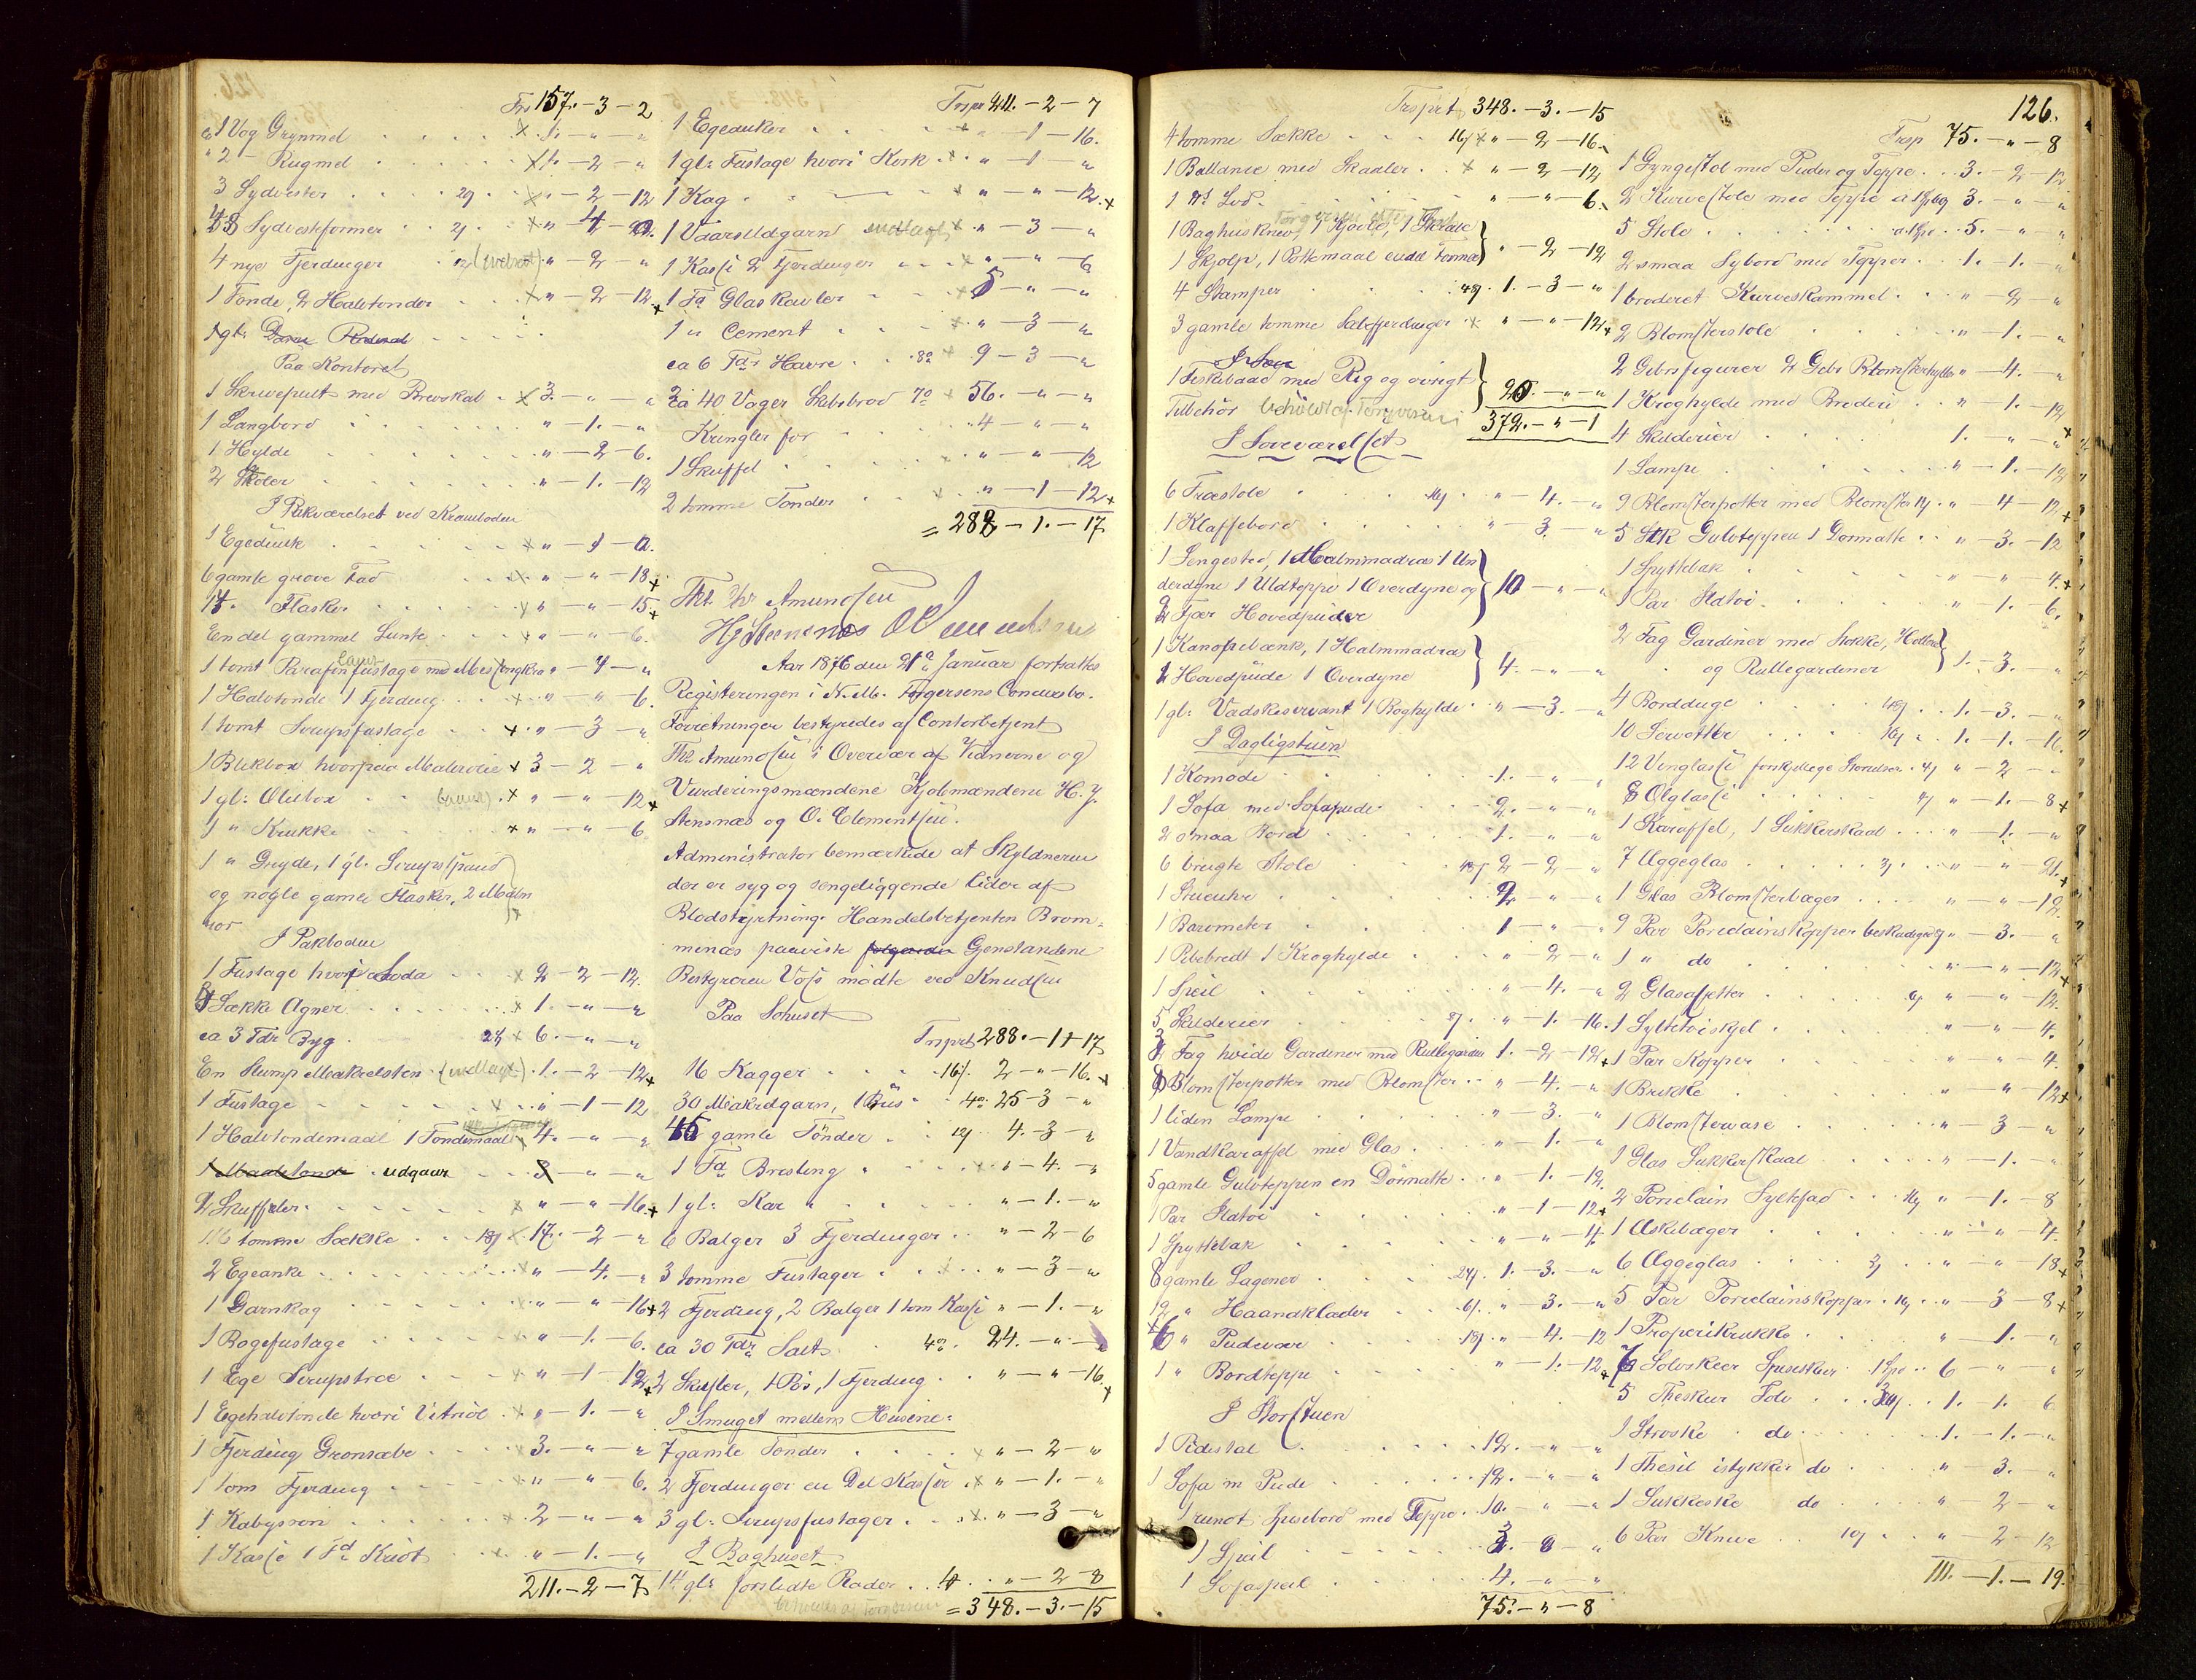 Fr 157. - 3 - 2
ca 1 Vog Grynmel . . . . 1. - " - "
" 2 - Rugmel . . . . 1. - 2 - "
3 Sydvester . . . 29 . " - 2 - 12
Sydvestformer . . " - 4 - "
4 nye Fjerdinger . . 12 " - 2 - "
1 Tonde, 2 Halvtonder . . " - 2 - 12
1 gl:
Paa Kontoret
1 Skrivepult med Brevskab . 3. - " - "
1 Langbord . . . " - 1. - "
1 Hylde . . . " - 2 - 6.
2 Stoler . . . " - 1. - 12
I Pakværelset ved Kramboden
1 Egedunk
6 gamle grove Fad . . " - " - 18
Flasker . . . " - " - 15
En del gammel Lunte . . " - " - 6.
1 tomt Parafinfustage med Messingkran " - 4 - "
1 Halvtonde 1 Fjerding . . " - " - 6.
1 tomt Sirupsfustage . . " - 3 - "
1 Blikbox hvorpaa Malerolie 3 - 2 - "
1 gl: Oliebox . . " - " - 12
1 " Krukke . . " - " - 6
1 " Gryde, 1 gl. Sirupsspand
og nogle gamle Flasker, 2
I Pakboden
1 Fustage hvori Soda . . 2 - 2 - 12.
Sække Agner . . . 1. - " - "
ca 3 Tdr Byg . . 2 6. - " - "
En Slump Makrelsten . 1. - 2 - 12
1 Fustage . . . " - 1 - 12
1 Halvtondemaal 1 Tondemaal 4. - " - "
udgaar . . 3 - " - "
2 Skuffeler . . . " - " - 16.
116 tomme Sække . . 18 17. - 2 - "
2 Egeanke . . . " - 4. - "
1 Garnkag . . . " - " - 16
1 Rogefustage . . . " - 1. - 6.
1 Ege Sirupstræ . . " - 1 - 12
1 Egehalvtonde hvori Vitriol . " - 1. - "
1 Fjerding Gronsæbe . . 3. - " - "
1 tom Fjerding . . " - " - 6.
1 Kabysson . . . 2 - " - "
1 Kasse 1 Td Kridt . . " - 1. - "
211. - 2 - 7
Trspr 211. - 2 - 7
1 Egedunker . . . " - 1 - 16.
1 gl: Fustage hvori Kork . . " - 1 - "
1 Kag . . " - " - 12.
1 Vaarsildgarn " - 3 - "
1 Kasse 2 Fjerdinger . . " - " - 6
1 Td Glaskavler . . 5 - " - "
1 " Cement . . . " - 3 - "
ca 6 Tdr Havre . . 9 - 3 - "
ca 40 Voger Skibsbrod 56. - " - "
Kringler for . . 4 - " - "
1 Skuffel . . . " - " - 12
2 tomme Tonder . . " - 1 - 12
= 288 - 1. - 17
Tht. Chr Amundsen
Hj Steensnæs O Clementsen
Aar 1876 den 21de Januar fortsattes
Registeringen i N. M. Torgersens Concursbo.
Forretningen bestyredes af Contorbetjent
Tht Amundsen i Overvær af Vidnerne og
Vurderingsmændene Kjobmændene H. J.
Stensnæs og O. Clementsen.
Administrator bemærkede at Skyldneren
der er syg og sengeliggende lider af
Blodstyrtning. Handelsbetjenten Brom-
menæs paaviste Genstandene
Bestyreren Voss modte ved Knudsen
Paa Sohuset
Trsprt 288. - 1 - 17
16 Kagger . . . 16 2 - " - 16.
30 Makrelgarn, 1 . 25 - 3 - "
gamle Tönder . . 12 4. - 3 - "
1 Td Bresling . . . " - 4. - "
1 gl: Kar . . . " - 1. - "
6 Balger 3 Fjerdinger . . " - 2 - 6
3 tomme Fustager . . " - 3 - "
2 Fjerding, 2 Balger 1 tom Kasse " - 1. - "
ca 30 Tdr Salt . . 24. - " - "
2 Skufler, 1 Pös, 1 Fjerding . . " - " - 16.
I Smuget mellem Husene.
7 gamle Tonder . . . " - 2 - "
2 Fjerdinger en Del Kasser . " - 1. - "
3 gl. Sirupsfustager . . " - 3 - "
I Baghuset
14 gl: forslidte Rader . . 4 . " - 2 - 8
= 348. - 3. - 15
Trsprt 348. - 3. - 15
4 tomme Sække . . . 16 " - 2 - 16.
1 Ballance med Skaaler . . " - 2 - 12
1 Lod . " - " - 6.
1 Baghuskniv, 1 Kjedel,
1 Skjolp, 1 Pottemaal endel } " - 2 - 12
4 Stamper . . . 1. - 3 - "
3 gamle tomme Sæbefjerdinger . " - " - 12
1 Fiskebaad med Rig og ovrigt
Tilbehör } 20. - " - "
372. - " - 1
I Soveværelset
6 Træstole . . . " - 4. - "
1 Klaffebord . . . " - 3. - "
1 Sengested, 1 Halmmadras 1 Un
derdyne 1 Uldteppe 1 Overdyne og } 10 - " - "
2 Fjær Hovedpuder
1 Kanapebænk, 1 Halmmadras
1 Hovedpude 1 Overdyne } 4. - " - "
1 gl: Vadskeservant 1 Boghylde . . " - 3. - "
I Dagligstuen
1 Komode . . . 1. - " - "
1 Sofa med Sofapude . . 2. - " - "
2 smaa Bord . . . 1. - " - "
6 brugte Stole . . 2 - 2 - "
1 Stueuhr . . . 2. - " - "
1 Barometer . . . 1 - " - "
1 Pibebredt 1 Kroghylde . . " - 2 - "
1 Speil . . . " - 4. - "
5 Skilderier . . . 8 . " - 1. - 16.
3 Fag hvide Gardiner med Rullegardin 1. - 2 - 12
Blomsterpotter med Blomster . . " - 4. - "
1 liden Lampe . . . " - 3. - "
1 Vandkaraffel med Glas . . " - 1. - "
5 gamle Gulvteppen en Dörmatte . . " - 1. - 12.
1 Par Ildtoi . . . " - 1 - 12
1 Spyttebak . . . " - " - 4.
8 gamle Lagener . . 24 . 1. - 3. - "
12 " Haandklæder . . 6 . " - 3. - "
6 " Pudevar . . 18 . " - 4. - 12
1 " Bordteppe . . . " - 1. - 12
I Storstuen
1 Pidestal . . . 12. - " - "
1 Sofa m Pude . . . 12. - " - "
1 rundt Spisebord med Teppe . . 10. - " - "
1 Speil . . . 3. - " - "
1 Sofaspeil . . . 4. - " - "
75. - " - 8
126.
Trsp 75. - " - 8
1 Gyngestol med Puder og Teppe . . 3. - 2 - 12
2 Kurvestole med Teppe 3. - " - "
5 Stole . . . 5. - " - "
2 smaa Sybord med Tepper . . 1. - 1. - "
1 broderet Kurveskammel . . " - 2 - "
2 Blomsterstole . . . " - 1. - "
2 Gibsfigurer 2 Gibs Blomsterhylder " - 4. - "
1 Kroghylde med Broderi . . " - 1. - 12
4 Skilderier . . . 1. - " - "
1 Lampe . . . " - 1. - 12
9 Blomsterpotter med Blomster " - 4 - 12
5 Stk Gulvteppen 1 Dormatte . . " - 3. - 12
1 Spyttebak . . . " - " - 4.
1 Par Ildtoi . . . " - 1. - 6.
2 Fag Gardiner med Stokke,
og Rullegardiner } 1. - 3. - "
4 Bordduge . . . 1. - 3. - "
10 Servietter . . . 1. - 1. - 16.
12 Vinglasse forskjellige Storrelser . 4 " - 2 - "
8 Olglasse . . . " - 1. - 8
1 Karaffel, 1 Sukkerskaal . . " - 1. - "
7 Æggeglas . . . 3 " - " - 21.
1 Glas Blomsterbæger . . . " - " - 12.
9 Par Porcelainskopper beskadigede " - 3. - "
1 " do . . . " - " - 12
2 Glasassietter . . . 6 " - " - 12.
1 Syltetoiskjel . . . " - " - 4.
1 Par Kopper . . . " - " - 4.
1 Brikke . . . " - " - 12
1 Blomstervase . . . " - 3 - "
1 Glas Sukkerskaal . . . " - 1. - "
2 Porcelain Syltefad . . . " - 1. - 8
1 Askebæger . . . " - " - 4.
6 Æggeglas . . . 3 . . " - " - 18
5 Par Porcelainskopper . . " - 3 - 8
1 Properikrukke . . . " - 1. - "
Solvskeer Spiseskeer . 1 Spd . . 6 - " - "
5 Theskeer Solv . . . 1. - 1. - 6
1 Stroske . do . . . 1. - 1. - "
1 Thesil istykker do . . " - 3. - "
1 Sukkeske do . . " - 2 - "
6 Par Knive . . 10 . . " - 2 - 12
111. - 1. - 19.